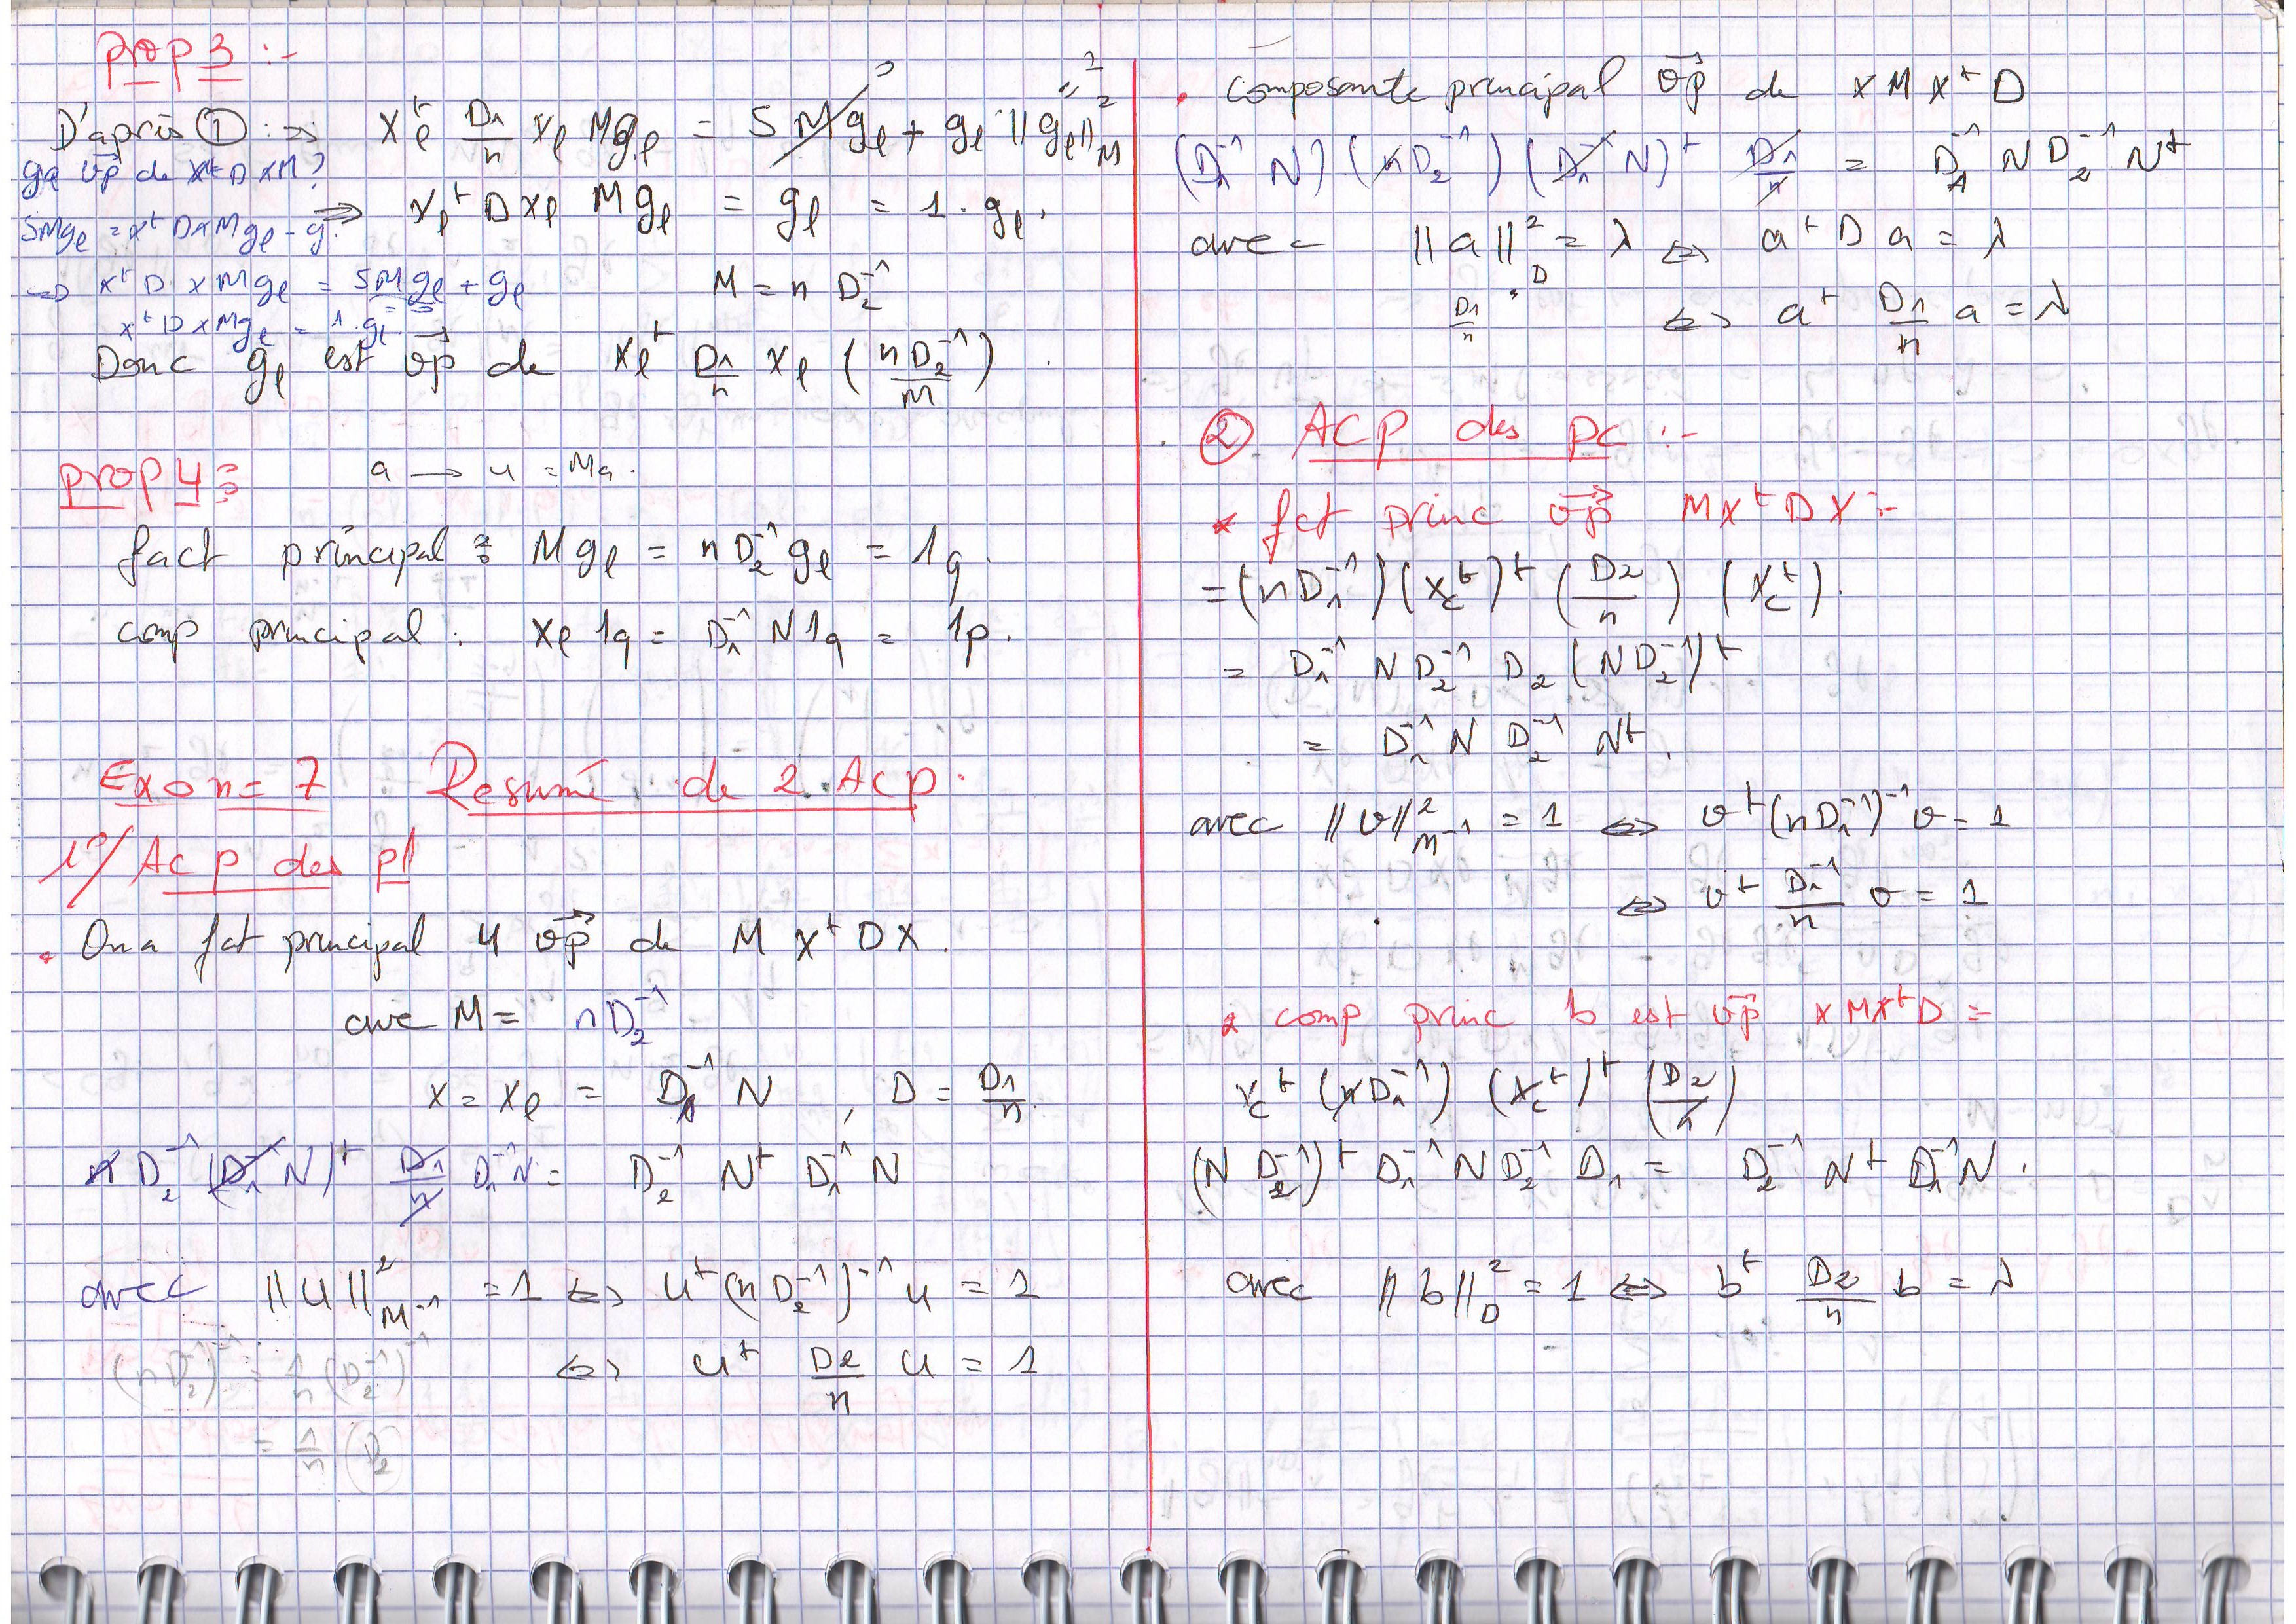 prop 3 :-
D'après ① :⇒ Xℓᵗ D₁/n Xℓ M gℓ = S M gℓ + gℓ ||gℓ||²_M
gℓ vp de XᵗDXM?
⇒ Xℓᵗ D Xℓ M gℓ = gℓ = 1. gℓ.
SMgℓ = XᵗDXMgℓ - g.
→ Xᵗ D X M gℓ = SMgℓ + gℓ
M = n D₂⁻¹
XᵗDXMgℓ = 1.gℓ
Donc gℓ est vp de Xℓᵗ D₁/n Xℓ (nD₂⁻¹)
M
prop 4 :
a → u = Ma.
fact principal : M gℓ = n D₂⁻¹ gℓ = 1q.
comp principal : Xℓ 1q = D₁⁻¹ N 1q = 1p.
Exo n= 7 Resumé de 2 Acp.
1°/ Acp des pl
. On a fct principal u vp de M Xᵗ D X.
avec M = nD₂⁻¹
X = Xℓ = D₁⁻¹ N , D = D₁/n.
n D₂⁻¹ (D₁⁻¹ N)ᵗ D₁/n D₁⁻¹N = D₂⁻¹ Nᵗ D₁⁻¹ N
avec ||u||²_M⁻¹ = 1 ⇔ uᵗ(n D₂⁻¹)⁻¹ u = 1
(nD₂⁻¹)⁻¹ = 1/n (D₂⁻¹)⁻¹
⇔ uᵗ D₂/n u = 1
= 1/n (D₂)
. Composante principal vp de X M Xᵗ D
(D₁⁻¹ N) (nD₂⁻¹) (D₁⁻¹ N)ᵗ D₁/n = D₁⁻¹ N D₂⁻¹ Nᵗ
avec ||a||²_D = λ ⇔ aᵗ D a = λ
D₁/n
⇔ aᵗ D₁/n a = λ
② ACP des pc :-
* fct princ vp MXᵗDX :-
= (nD₁⁻¹) (Xcᵗ)ᵗ (D₂/n) (Xcᵗ).
= D₁⁻¹ N D₂⁻¹ D₂ (ND₂⁻¹)ᵗ
= D₁⁻¹ N D₂⁻¹ Nᵗ.
avec ||v||²_M⁻¹ = 1 ⇔ vᵗ(nD₁⁻¹)⁻¹v = 1
⇔ vᵗ D₁⁻¹/n v = 1
* comp princ b est vp XMXᵗD =
Xcᵗ (nD₁⁻¹) (Xcᵗ)ᵗ (D₂/n)
(N D₂⁻¹)ᵗ D₁⁻¹ N D₂⁻¹ D₁ = D₂⁻¹ Nᵗ D₁⁻¹N.
avec ||b||²_D = 1 ⇔ bᵗ D₂/n b = λ